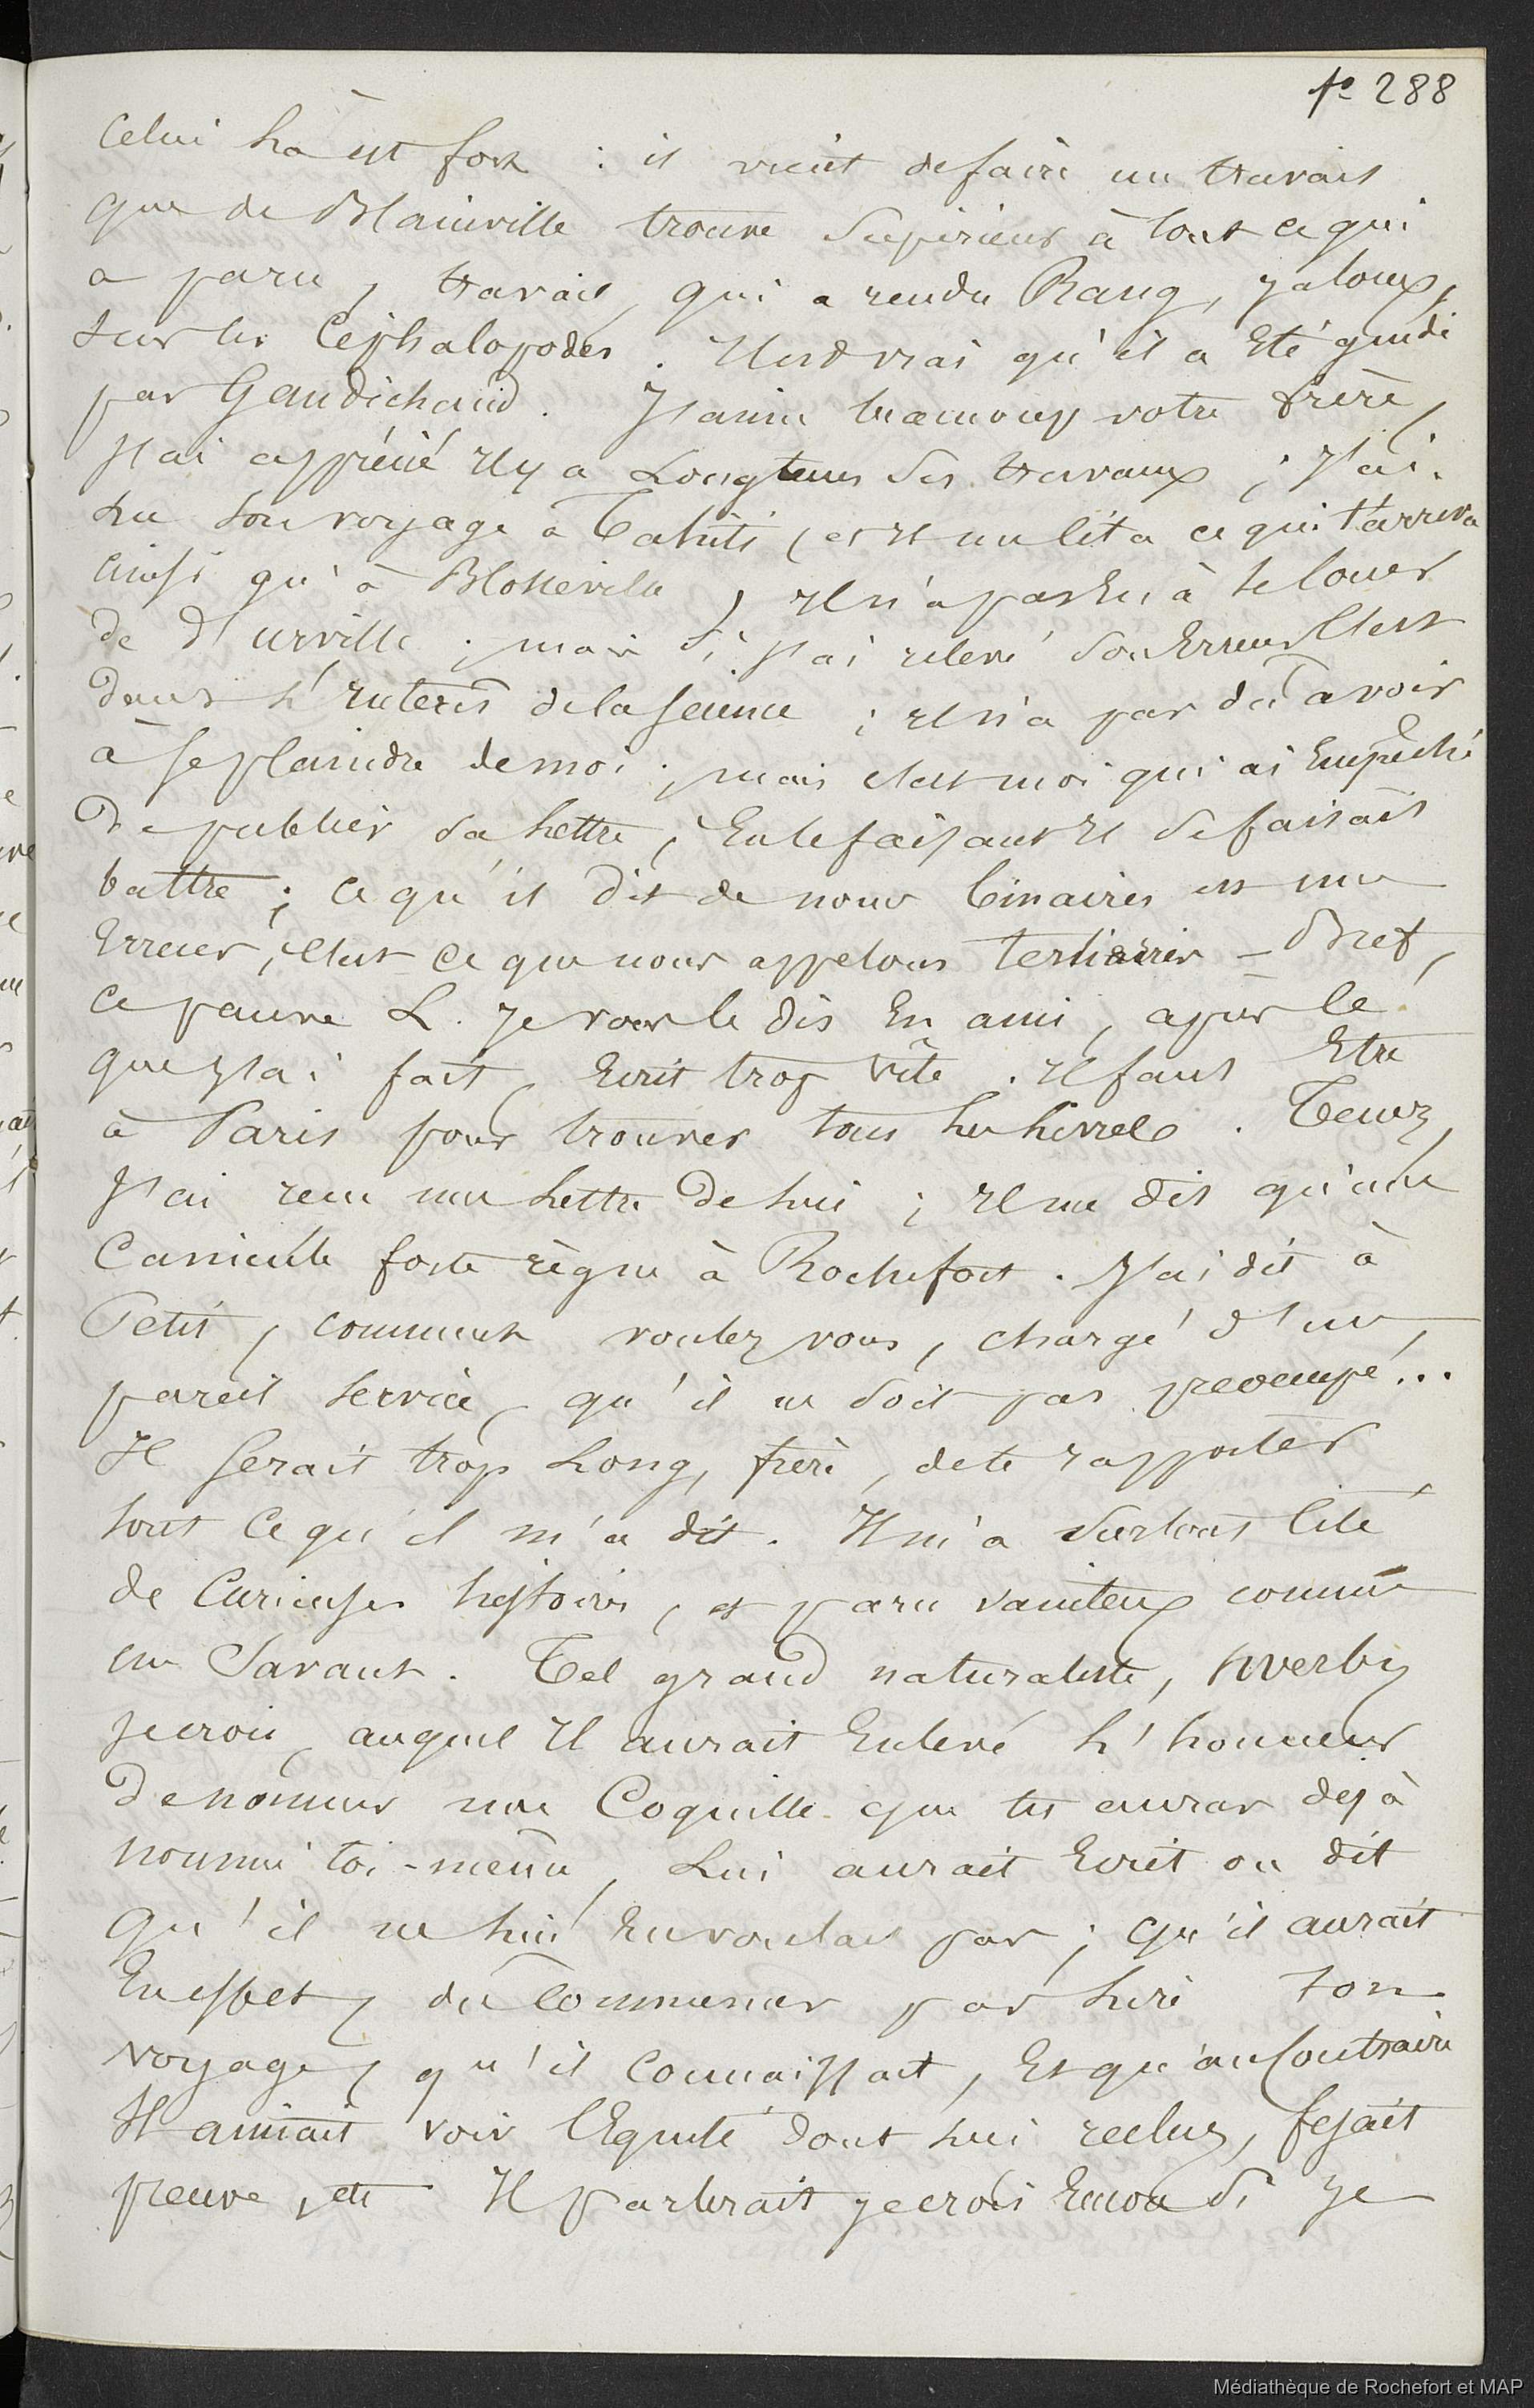 fo 288
Celui là est fort : il vient de faire un travail
que de Blainville trouve supérieur à tout ce qui
a paru, travail, qui a rendu Rang, jaloux,
sur les Céphalopodes. Il est vrai qu'il a été guidé
par Gaudichaud. J'aime beaucoup votre frère,
j'ai apprécié il y a longtems ses travaux ; j'ai
lu son voyage à Tahiti (et il me lit a ce qui t'arriva
ainsi qu'à Blosseville), il n'a pas eu à se louer
de d'urville ; mais si j'ai relevé son Erreur C'est
dans l'intérêt de la science ; il n'a pas dû avoir
à se plaindre de moi ; mais c'est moi qui ai Empêché
de publier sa lettre, En le faisant il se faisait
battre ; ce qu'il dit de nous binaires est une
Erreur, C'est ce que nous appelons tertiaires - Bref,
ce pauvre L. je vous le dis En ami, après le
que j'ai fait, Ecrit trop vîte. Il faut Etre
à Paris pour trouver tous les livres. Tenez,
j'ai reçu une lettre de lui ; il me dit qu'une
Canicule forte règne à Rochefort. J'ai dit à
Petit, comment voulez vous, chargé d'un
pareil service, qu'il ne soit pas préoccupé !...
Il serait trop long, frère, de te rapporter
tout ce qu'il m'a dit. Il m'a surtout Cité
de Curieuses histoires, et paru vaniteux comme
un Savant. Tel grand naturaliste,
je crois, auquel Il aurait Enlevé l'honneur
de nommer une Coquille que tu auras déjà
nommé toi-même, lui aurait Ecrit ou dit
qu'il ne lui En voulait pas ; qu'il aurait
En effet, dû Commencer par lire ton
voyage, qu'il Connaissait, Et qu'au Contraire
Il aimait voir l'Equité dont lui recluz, fesait
preuve, etc Il parlerait je crois Encore si je
Médiathèque de Rochefort et MAP